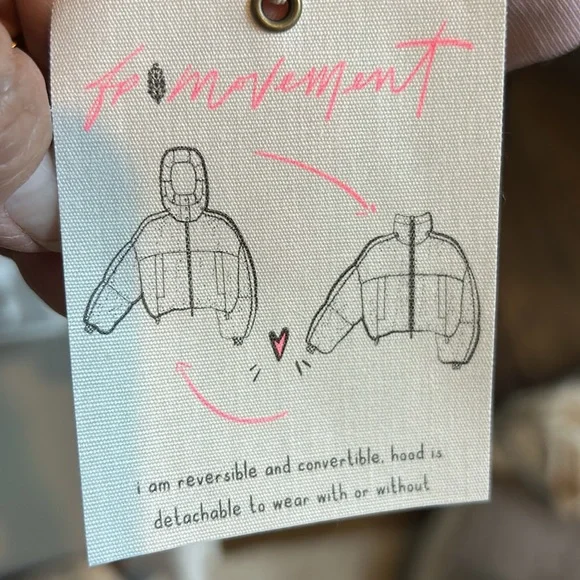 fp movement
i am reversible and convertible. hood is
detachable to wear with or without